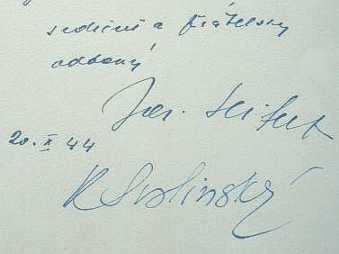 srdečně a přátelsky
oddaný
Jar. Seifert
20. X 44
K Svolinský